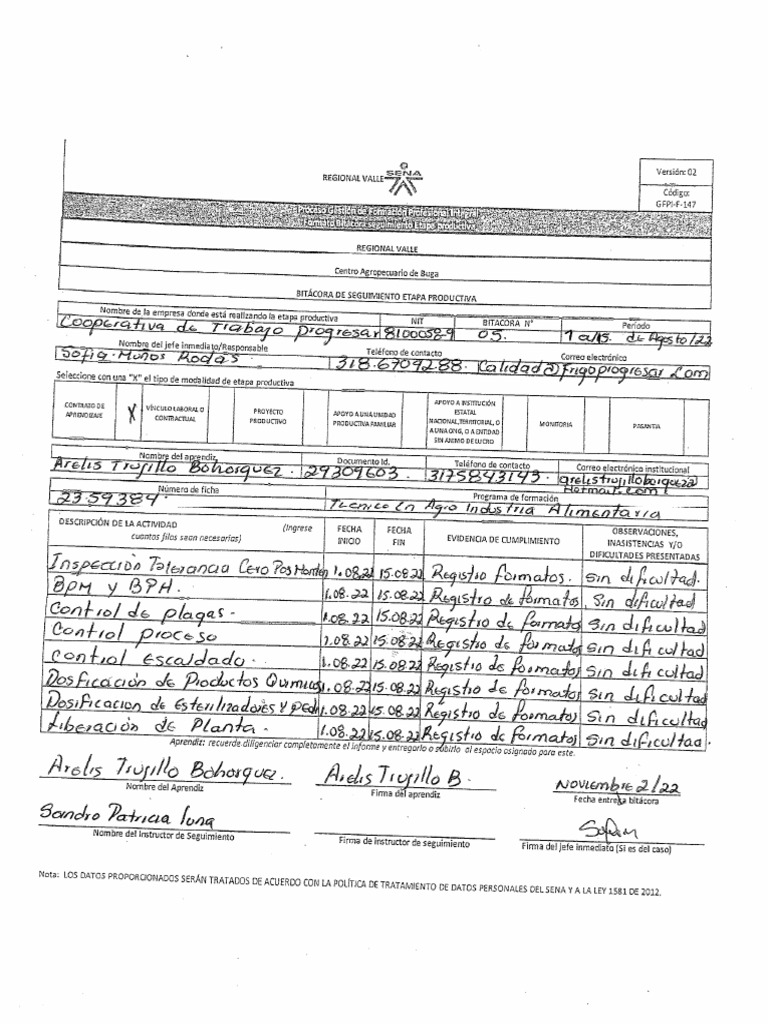 REGIONAL VALLE
SENA
Versión: 02
Código:
GFPI-F-147
Proceso Gestión de Formación Profesional Integral
Formato Bitácora seguimiento Etapa productiva
REGIONAL VALLE
Centro Agropecuario de Buga
BITÁCORA DE SEGUIMIENTO ETAPA PRODUCTIVA
Nombre de la empresa donde está realizando la etapa productiva NIT BITACORA N° Período
Cooperativa de Trabajo progresar 81000589 05. 1 a/15. de Agosto/22
Nombre del jefe inmediato/Responsable Teléfono de contacto Correo electrónico
Sofia Muños Rodas. 318.6709288. Calidad@frigoprogresar.com
Seleccione con una "X" el tipo de modalidad de etapa productiva
CONTRATO DE APRENDIZAJE X VÍNCULO LABORAL O CONTRACTUAL PROYECTO PRODUCTIVO APOYO A UNA UNIDAD PRODUCTIVA FAMILIAR APOYO A INSTITUCIÓN ESTATAL NACIONAL, TERRITORIAL, O A UNA ONG, O A ENTIDAD SIN ANIMO DE LUCRO MONITORIA PASANTIA
Nombre del aprendiz Documento Id. Teléfono de contacto Correo electrónico institucional
Arelis Trujillo Bohorquez. 29309603. 3175843143 arelistrujillobohorquez@
Hotmail.com
Número de ficha Programa de formación
2359384. Tecnico En Agro Industria Alimentaria
DESCRIPCIÓN DE LA ACTIVIDAD (Ingrese cuantas filas sean necesarias) FECHA INICIO FECHA FIN EVIDENCIA DE CUMPLIMIENTO OBSERVACIONES, INASISTENCIAS Y/O DIFICULTADES PRESENTADAS
Inspección Tolerancia Cero Pos Morten 1.08.22 15.08.22 Registro formatos. Sin dificultad.
BPM y BPH. 1.08.22 15.08.22 Registro de formatos. Sin dificultad
Control de plagas. 1.08.22 15.08.22 Registro de formatos Sin dificultad
Control proceso 1.08.22 15.08.22 Registro de formatos Sin dificultad
Control Escaldado. 1.08.22 15.08.22 Registro de formatos Sin dificultad
Dosficación de Productos Quimicos 1.08.22 15.08.22 Registro de formatos Sin dificultad
Dosificacion de Esterilizadores y pedi 1.08.22 15.08.22 Registro de formatos Sin dificultad
Liberación de Planta. 1.08.22 15.08.22 Registro de formatos Sin dificultad.
Aprendiz: recuerde diligenciar completamente el informe y entregarlo o subirlo al espacio asignado para este.
Arelis Trujillo Bohorquez. Arelis Trujillo B. Noviembre 2/22
Nombre del Aprendiz Firma del aprendiz Fecha entrega bitácora
Sandra Patricia luna
Nombre del Instructor de Seguimiento Firma de instructor de seguimiento Firma del jefe inmediato (Si es del caso)
Nota: LOS DATOS PROPORCIONADOS SERÁN TRATADOS DE ACUERDO CON LA POLÍTICA DE TRATAMIENTO DE DATOS PERSONALES DEL SENA Y A LA LEY 1581 DE 2012.